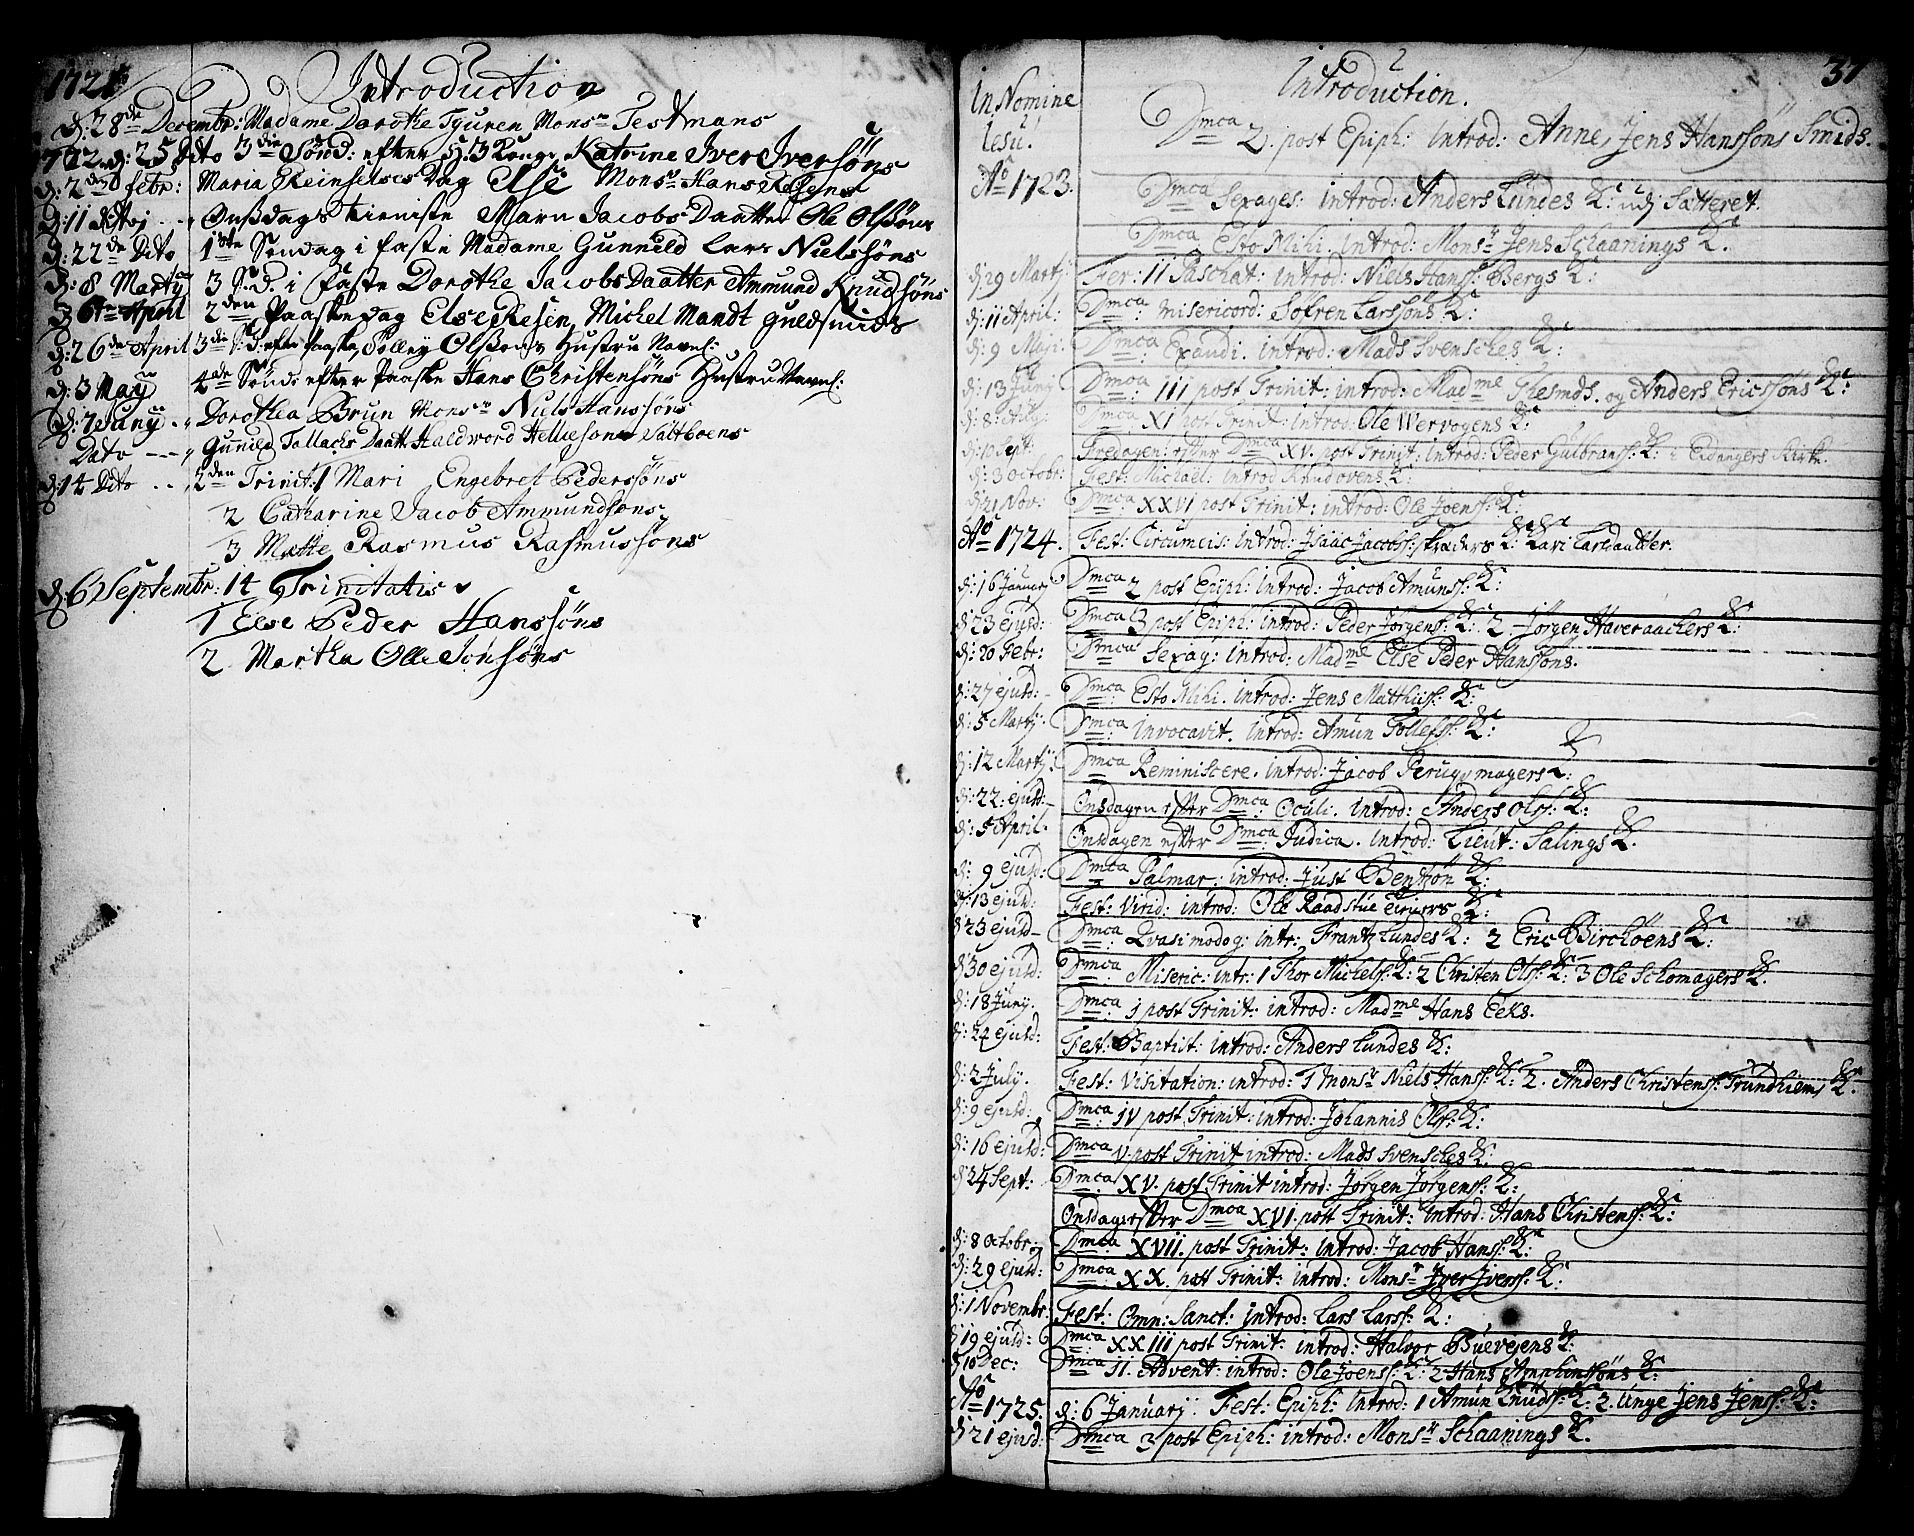 1721
Introduction
d: 28de Decembr: Madame Dorothe Tyuren Monsr Testmans
722 d: 25 Dito 3die Sønd: efter H. 3 Kong. Katrine Iver Iversøns
d: 2den febr: Maria Reinselses Dag Else Monsr Hans Resens
d: 11 Dito Onsdags tieniste Marn Jacobs Daatter Ole Olssøns
d: 22de Dito 1ste Søndag i faste Madame Gunnild Lars Nielssøns
d: 8 Marty 3 S: D: i faste Dorothe Jacobs Daatter Ammund Knudsøns
d: 6te April 2den Paaskedag Else Resen, Michel Mandt guldsmids
d: 26de April 3de S: D: efter Paaske, Olssøns Hustru Navnl:
d: 3 May 4de Sønd: efter Paaske Hans Christensøns Hustru Navnl:
d: 7 Juny Dorothea Brun Monsr Niels Hanssøns
Dato Gunild Tallachs Daatt: Haldword Hellesøns Saltboens
d: 14 Dito 2den Trinit: 1 Mari Engebret Pederssøns
2 Catharine Jacob Ammundsøns
3 Mette Rasmus Rasmussøns
d: 6 Septembr: 14 Trinitatis
1 Else Peder Hanssøns
2 Martha Olle Jonsøns
37
In Nomine
Iesu.
Introduction.
Dmca 2. post Epiph: Introd: Anne, Jens Hanssøns Smids.
Ao 1723. Dmca Sexages: introd: Anders Lundes K: udj Sætteret.
Dmca Esto Mihi. introd: Monsr Jens Schaanings K:
d: 29 Martj: Fer: II Paschat: introd: Niels Hanss: Bergs K:
d: 11 April: Dmca misericord: Sofren Larssøns K:
d: 9 Maji: Dmca Exaudi. introd: Mads Svensches K:
d: 13 Junj Dmca III post Trinit: introd: Madme Glesmds. og Anders Ericssøns K:
d: 8: Aug: Dmca XI post Trinit: introd: Ole Wervogens K:
d: 10 Sept: Fredagen efter Dmca XV. post Trinit: introd: Peder Gulbranss: K: i Eidangers Kirke.
d: 3 Octobr: Fest: Michael: introd Knud ovens K:
d: 21 Nov: Dmca XXVI post Trinit: introd: Ole Joenss: K:
Ao 1724. Fest: Circumcis: introd: Isaac Jacobss: skræders K: Kari Larsdaatter.
d: 16 Januar: Dmca 2 post Epiph: introd: Jacob Amunss: K:
d: 23 ejusd: Dmca 3 post Epiph: introd: Peder Jørgenss: K: 2. Jørgen Haveraachers K:
d: 20 Febr: Dmca Sexag: introd: Madme Else Peder Hanssøns.
d: 27 ejusd: Dmca Esto Mihi. introd: Jens Matthiss: K:
d: 5 Martj: Dmca Invocavit. introd: Amun Tollefss: K:
d: 12 Martj: Dmca Reminiscere. introd: Jacob Perugvmagers K:
d: 22. ejusd: Onsdagen efter Dmca Oculi. introd: Anders Olss: K:
d: 5 April. Onsdagen efter Dmca Judica. introd: Lieut: Salings K.
d: 9 ejusd: Dmca Palmar: introd: Just Bentzøn K:
d: 13 ejusd: Fest: Virid: introd: Ole Raadstue K:
d: 23 ejusd Dmca Qvasimodog: intr: Frantz Lundes K: 2 Eric Birchöens K:
d: 30 ejusd: Dmca Miseric: intr: 1 Thor Michelss: K: 2 Christen Olss: K: 3 Ole Schomagers K.
d: 18 Juny. Dmca j post Trinit: introd: Madme Hans Eeks.
d: 24 ejusd: Fest: Baptist: introd: Anders Lundes K:
d: 2 July. Fest: Visitation: introd: 1 Monsr Niels Hanss: K: 2. Anders Christens: Trundhiems K:
d: 9 ejusd: Dmca IV post Trinit: introd: Johannis Olss: K:
d: 16 ejusd: Dmca V. post Trinit introd: Mads Svensches K:
d: 24 Sept: Dmca XV. post Trinit introd: Jørgen Jørgenss: K:
Onsdag efter Dmca XVI. post Trinit: introd: Hans Christenss: K:
d: 8 Octobr: Dmca XVII. post Trinit: introd: Jacob Hanss: K:
d: 29 ejusd: Dmca XX. post Trinit: introd: Monsr Iver Iverss: K:
d: 1 Novembr: Fest: Omn: Sanct: introd: Lars Larss: K:
d: 19 ejusd: Dmca XXIII post Trinit: introd: Halvor Buevejens K:
d: 10 Dec: Dmca II. Advent: introd: Ole Joenss: K: 2 Hans K:
Ao 1725. d: 6 January. Fest: Epiph: introd: 1 Amun Knudss: K: 2. Unge Jens Jenss: K:
d: 21 ejusd: Dmca 3 post Epiph: introd: Monsr Schaanings K.